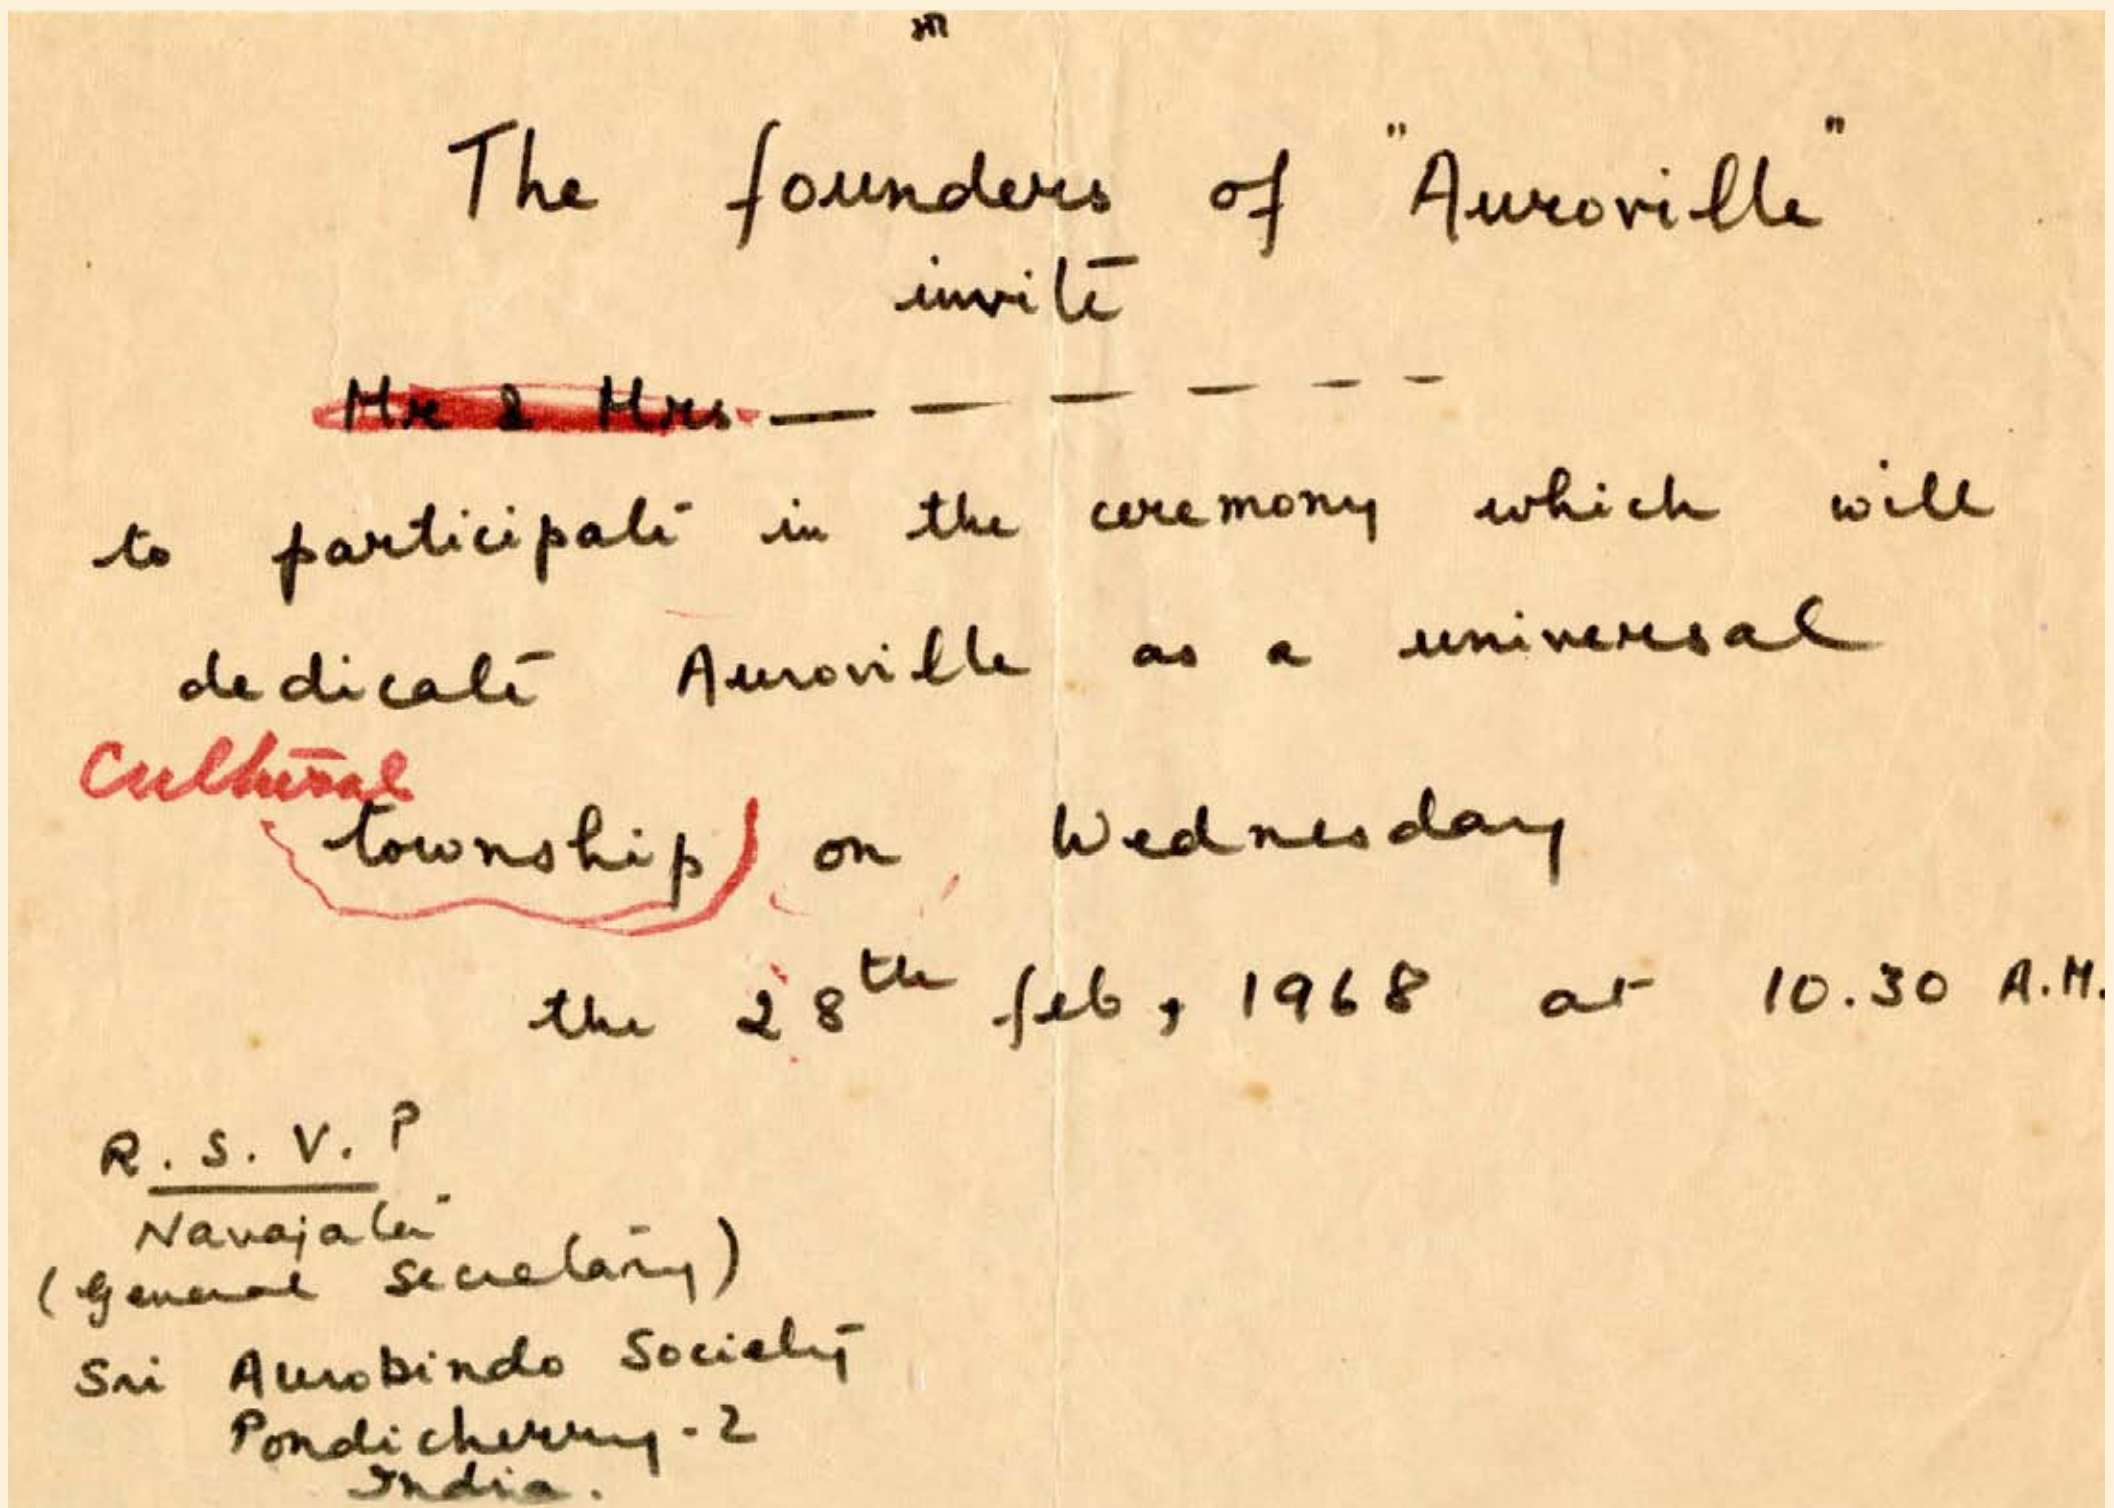 The founders of "Auroville"
invite
Mr & Mrs — — — — — —
to participate in the ceremony which will
dedicate Auroville as a universal
Cultural
township) on Wednesday
the 28th feb, 1968 at 10.30 A.M.
R. S. V. P
Navajata
(General Secretary)
Sri Aurobindo Society
Pondicherry - 2
India.